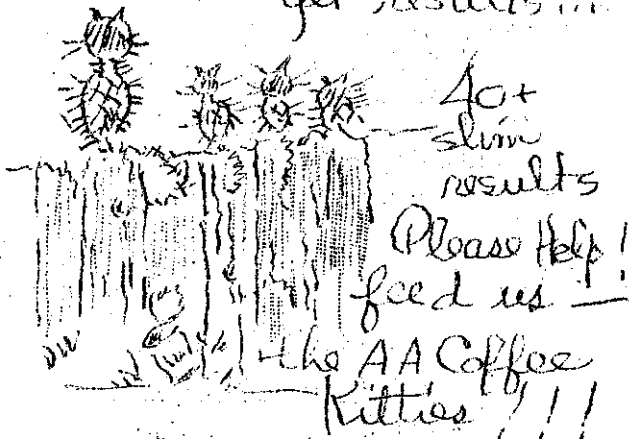 get results!!!
40+
slim
results
Please Help!
feed us —
the AA Coffee
Kitties!!!